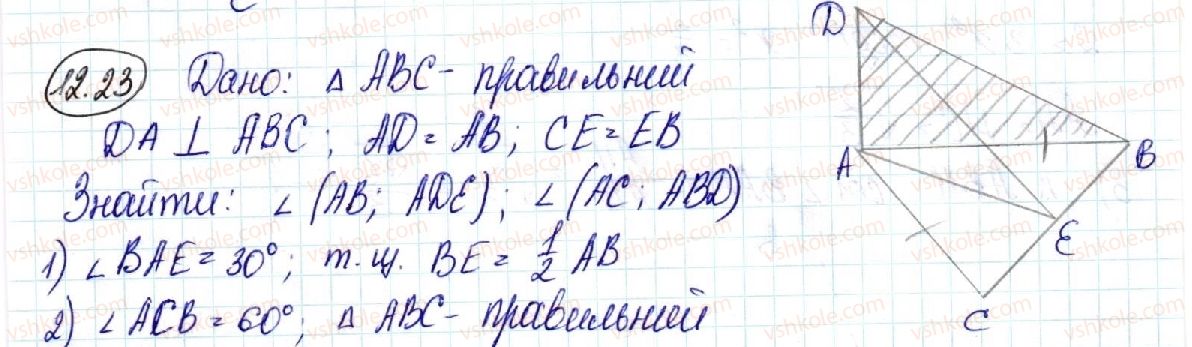 12.23 Дано: △ ABC - правильний
DA ⊥ ABC; AD = AB; CE = EB
Знайти: ∠(AB; ADE); ∠(AC; ABD)
1) ∠BAE = 30°; т.щ. BE = 1/2 AB
2) ∠ACB = 60°; △ ABC - правильний
D
A
B
E
C